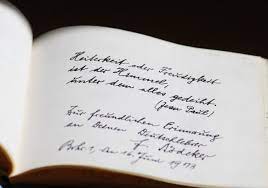 Heiterkeit oder Freudigkeit
ist der Himmel,
unter dem alles gedeiht.
(Jean Paul)
Zur freundlichen Erinnerung
an Deinen Deutschlehrer
F. Rödeker
16. Juni 1973